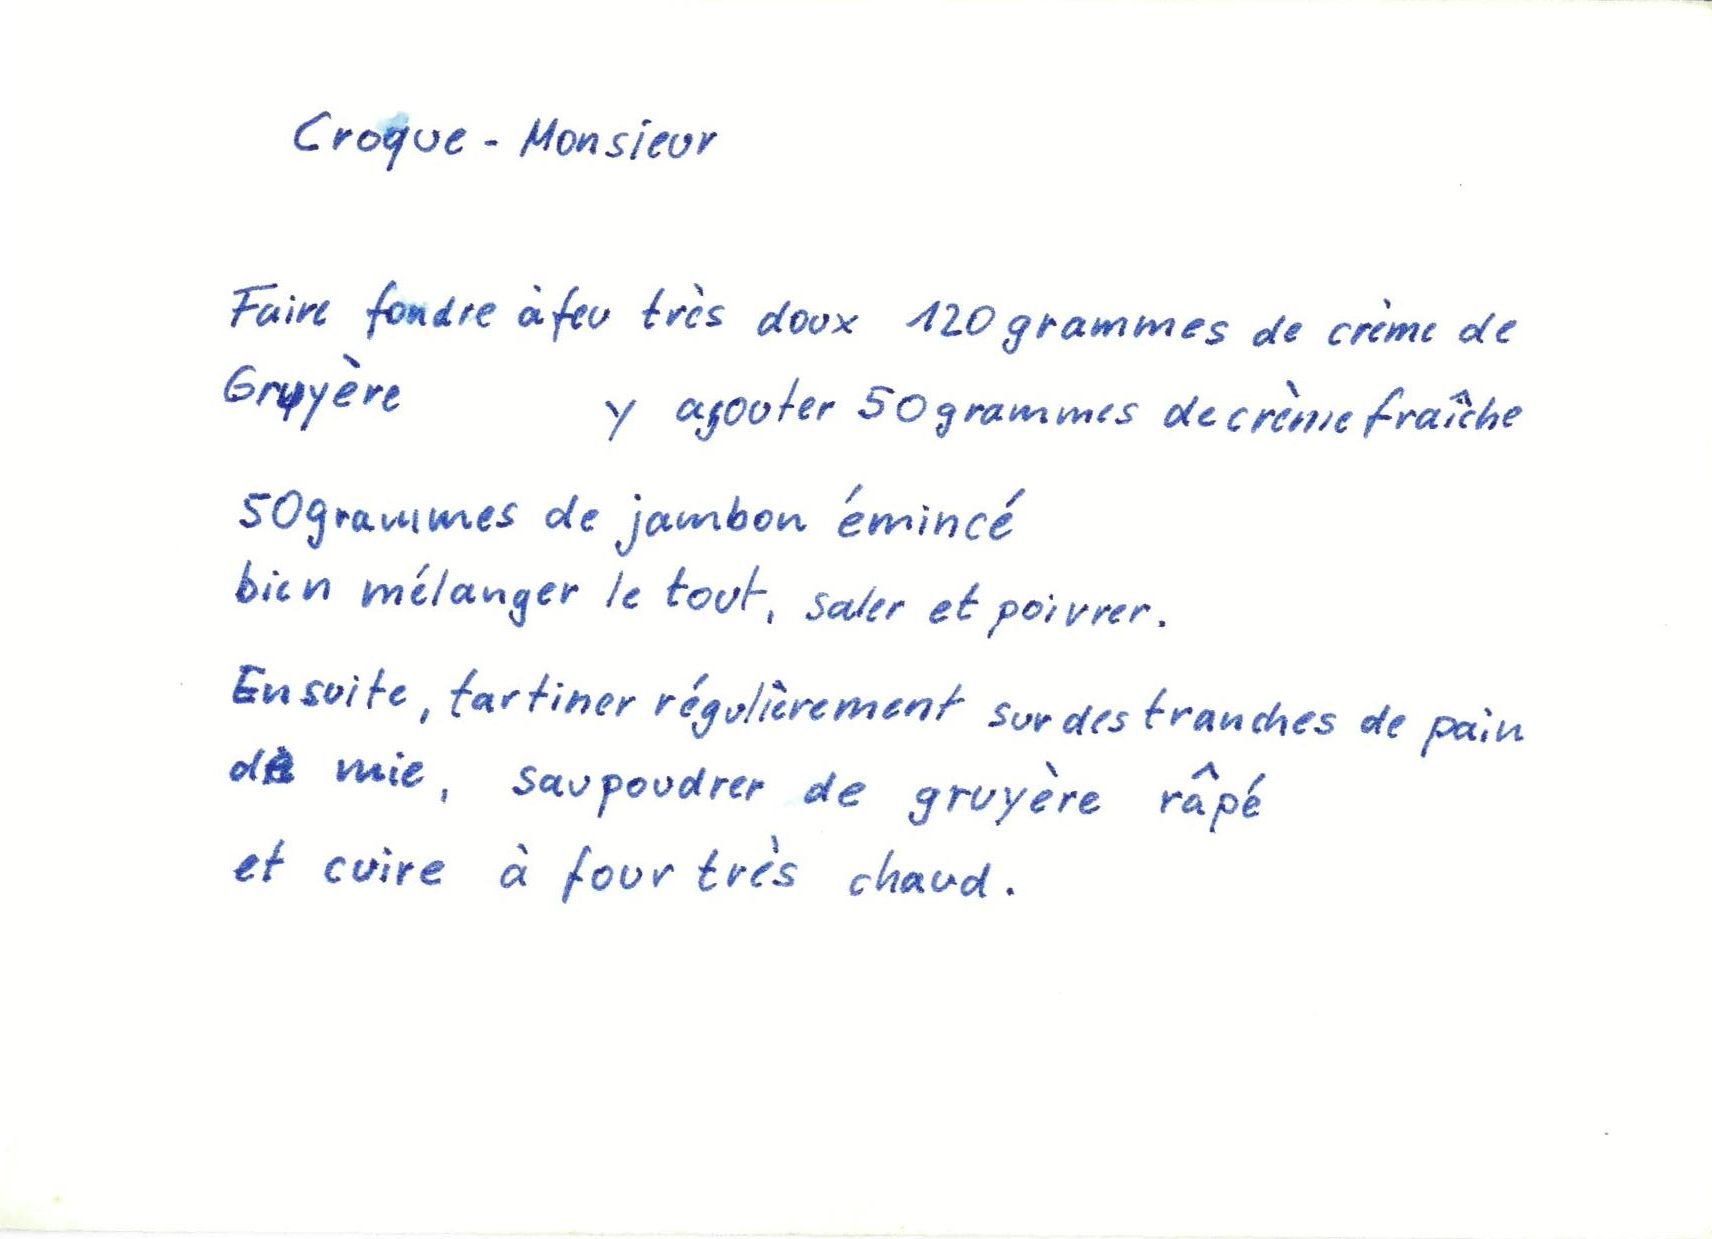 Croque - Monsieur
Faire fondre à feu très doux 120 grammes de crème de
Gruyère y ajouter 50 grammes de crème fraîche
50 grammes de jambon émincé
bien mélanger le tout, saler et poivrer.
Ensuite, tartiner régulièrement sur des tranches de pain
de mie, saupoudrer de gruyère râpé
et cuire à four très chaud.